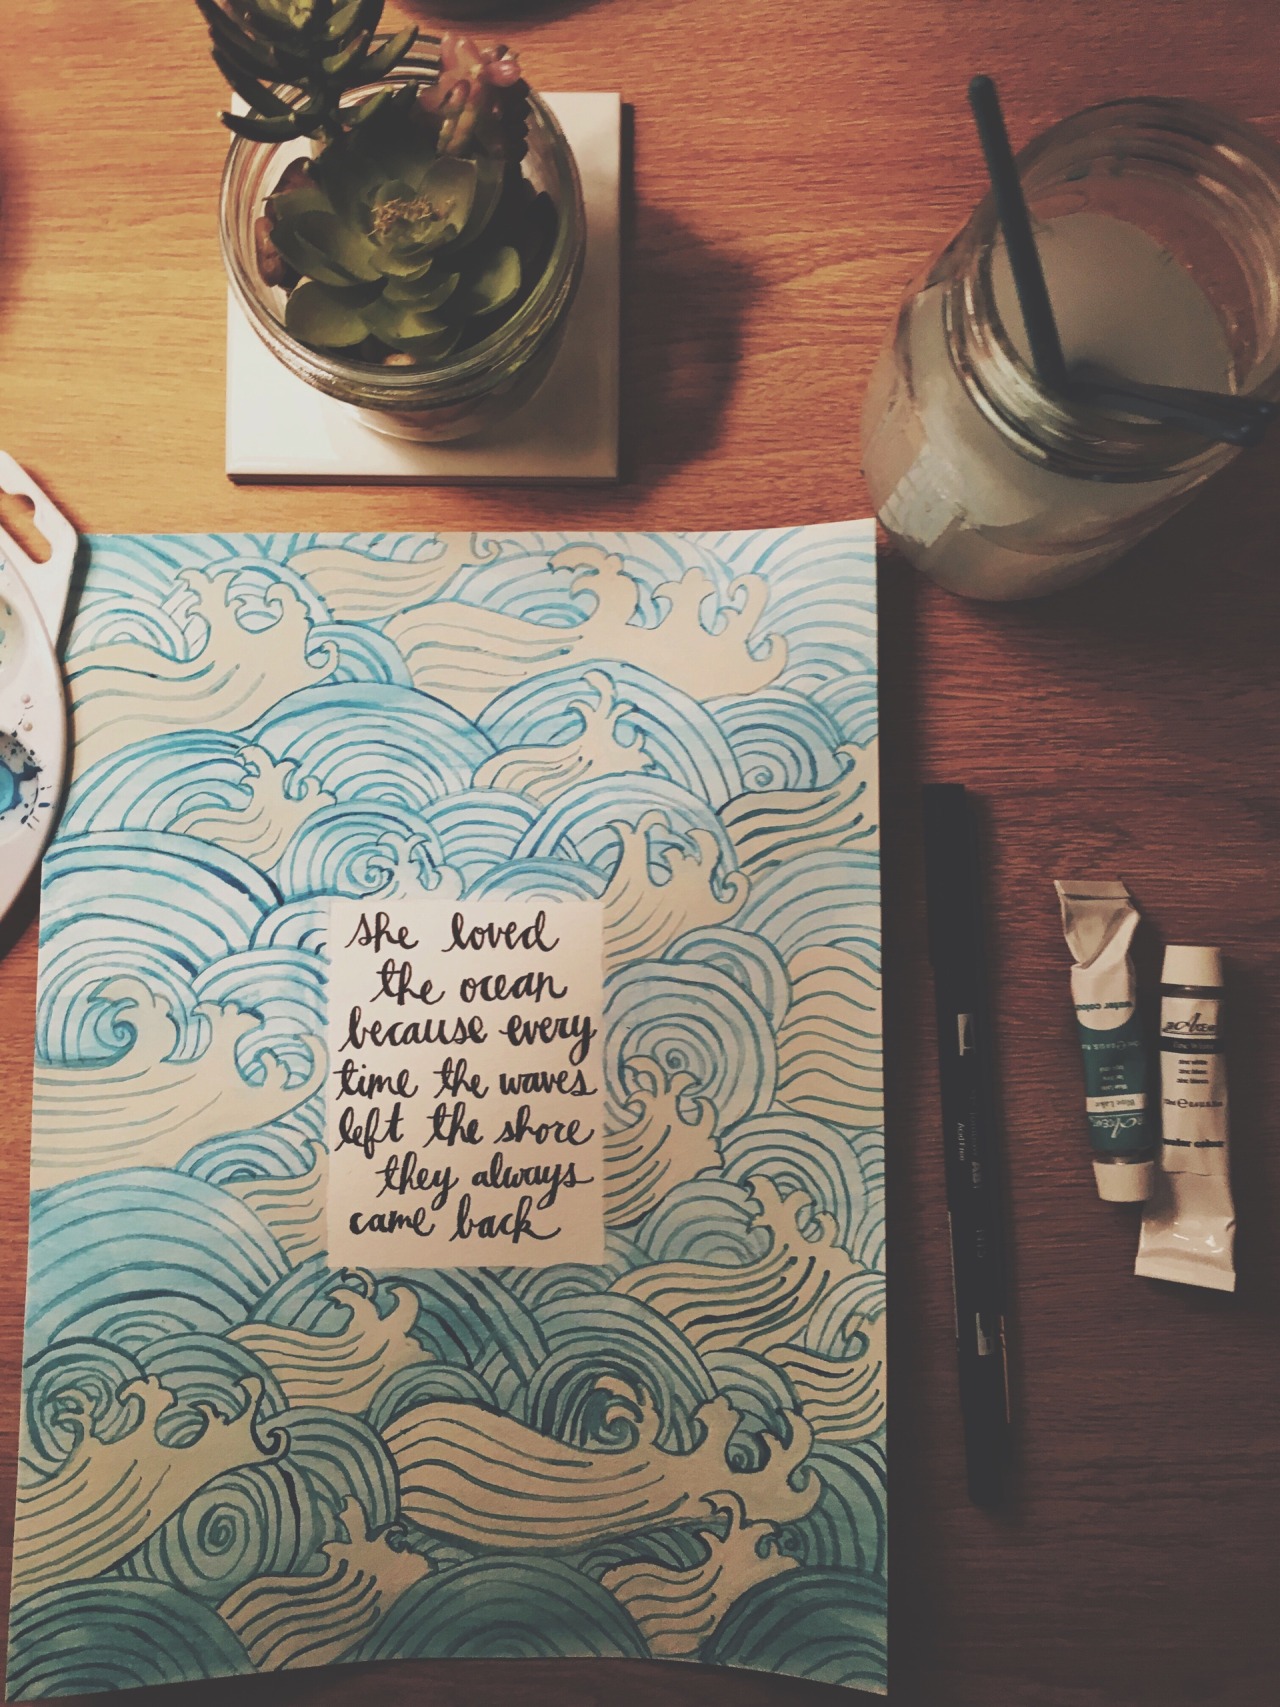 she loved
the ocean
because every
time the waves
left the shore
they always
came back
water colour